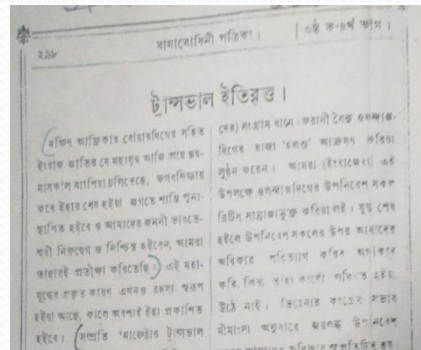 ২৯৮
বামাবোধিনী পত্রিকা।
[ ৬ষ্ঠ ক-৪র্থ ভাগ।
ট্রান্সভাল ইতিবৃত্ত।
দক্ষিণ আফ্রিকার বোয়ারদিগের সহিত
ইংরাজ জাতির যে মহাযুদ্ধ আজি প্রায়
মাসকাল ব্যাপিয়া চলিতেছে,
কবে ইহার শেষ হইয়া জগতে শান্তি পুনঃ-
স্থাপিত হইবে ও আমাদের জননী ভারতে-
শ্বরী নিরুদ্বেগ ও নিশ্চিন্ত হইবেন, আমরা
তাহারই প্রতীক্ষা করিতেছি। এই মহা-
যুদ্ধের প্রকৃত কারণ এখনও রহস্য
হইয়া আছে, কালে অবশ্যই ইহা প্রকাশিত
হইবে। সম্প্রতি ট্রান্সভাল
সংগ্রাম বাধে। ফরাসী সৈন্য ওলন্দাজ-
দিগের রাজ্য আক্রমণ করিয়া
লুণ্ঠন করেন। আমরা (ইংরাজেরা) এই
উপলক্ষে ওলন্দাজদিগের উপনিবেশ সকল
ব্রিটিশ সাম্রাজ্যভুক্ত করিয়া লই। যুদ্ধ শেষ
হইলে উপনিবেশ সকলের উপর আমাদের
অধিকার পরিত্যাগ করিব অঙ্গীকার
করি, কিন্তু তাহা কার্য্যে পরিণত হইয়া
উঠে নাই। ভিয়েনার কংগ্রেস সভার
মীমাংসা অনুসারে উপনিবেশ